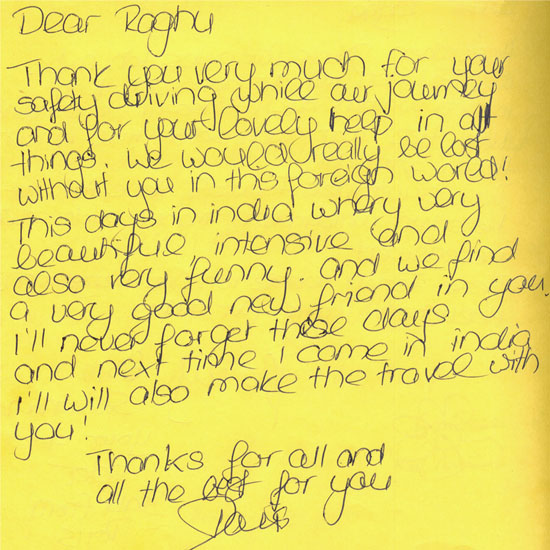 Dear Raghu
Thank you very much for your
safety driving while our journey
and for your lovely help in all
things. We would really be lost
without you in this foreign world!
This days in india whery very
beautiful, intensive and
also very funny. and we find
a very good new friend in you.
I'll never forget these days
and next time I came in india
i'll will also make the travel with
you!
Thanks for all and
all the best for you